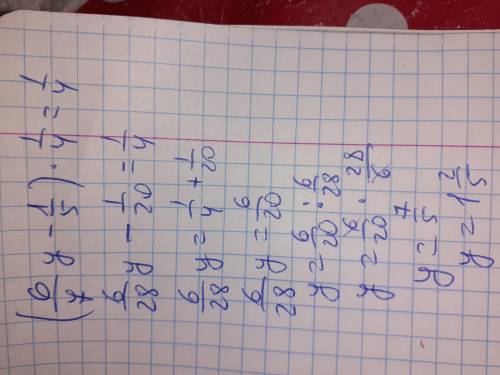 (6/7 y - 1/5) · 1/4 = 1/4
6/28 y - 1/20 = 1/4
6/28 y = 1/4 + 1/20
6/28 y = 6/20
y = 6/20 : 6/28
y = 6/20 · 28/6
y = 7/5
y = 1 2/5